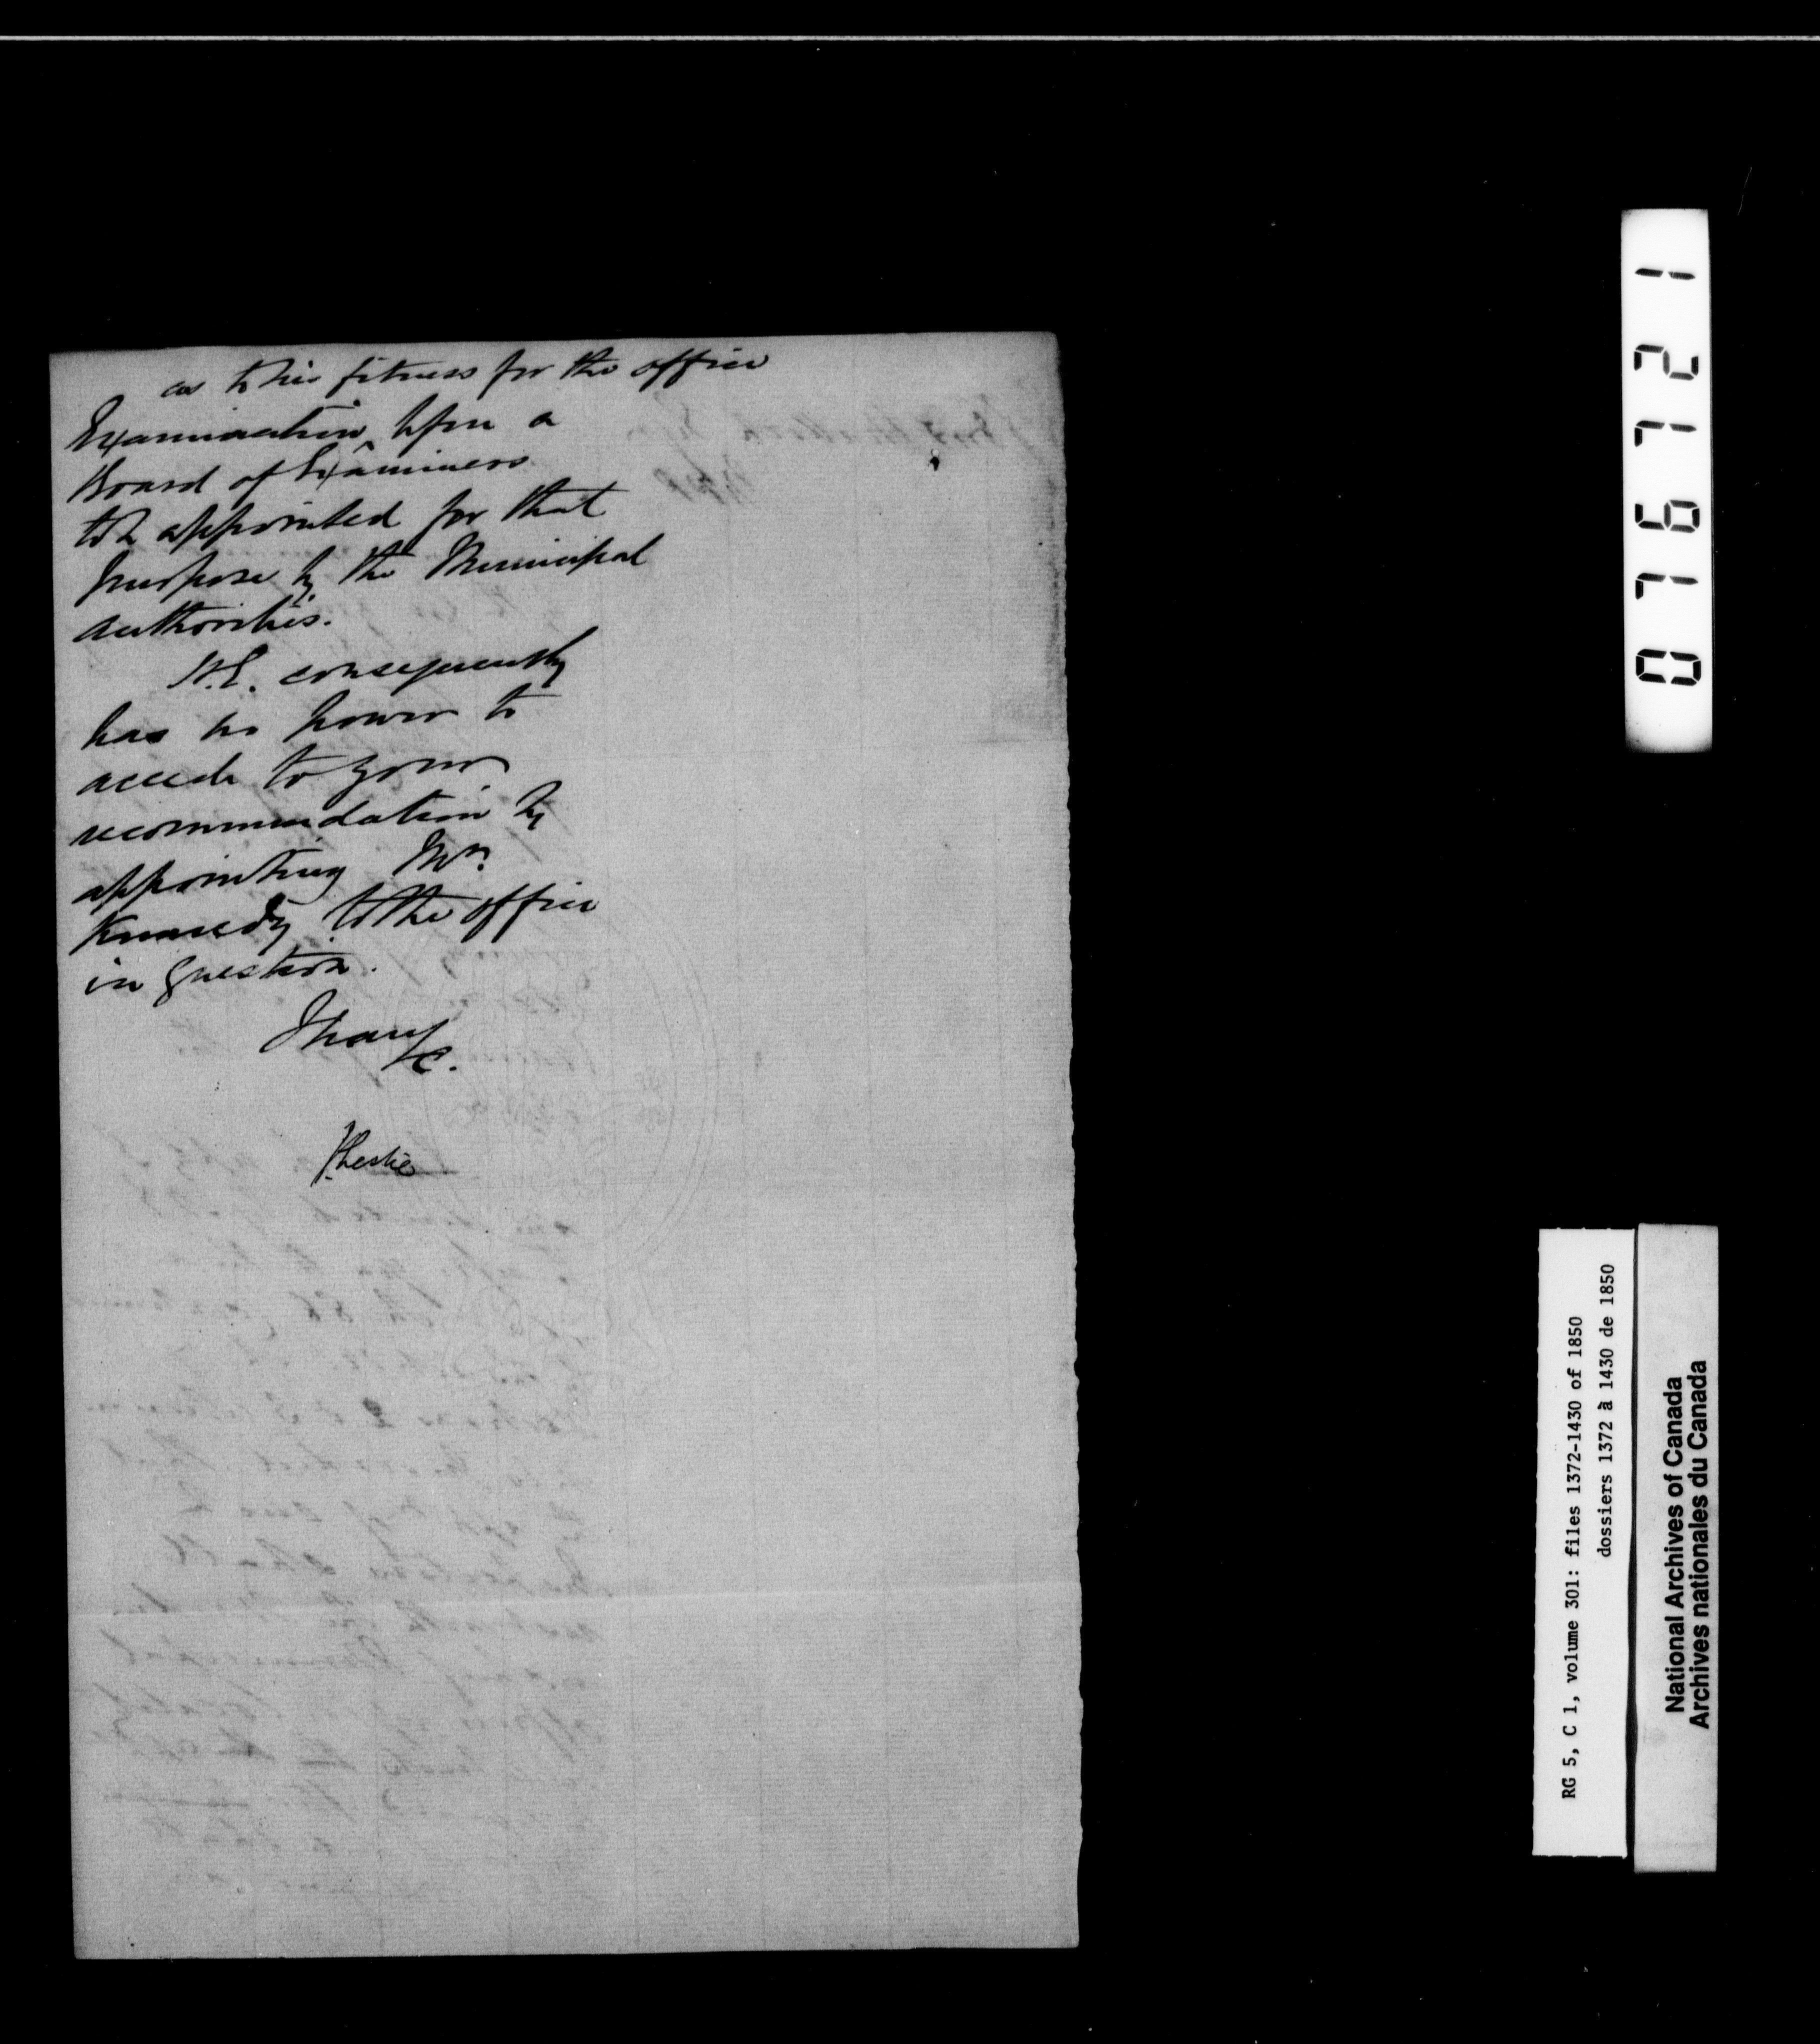 as to his fitness for the office
Examination ^ before a
Board of Examiners
to be appointed for that
purpose by the Municipal
authorities.
H.E. consequently
has no power to
accede to your
recommendation by
appointing Mr.
Kennedy to the office
in question.
I have
&c.
J. Leslie
076721
RG 5, C 1, volume 301: files 1372-1430 of 1850
dossiers 1372 à 1430 de 1850
National Archives of Canada
Archives nationales du Canada